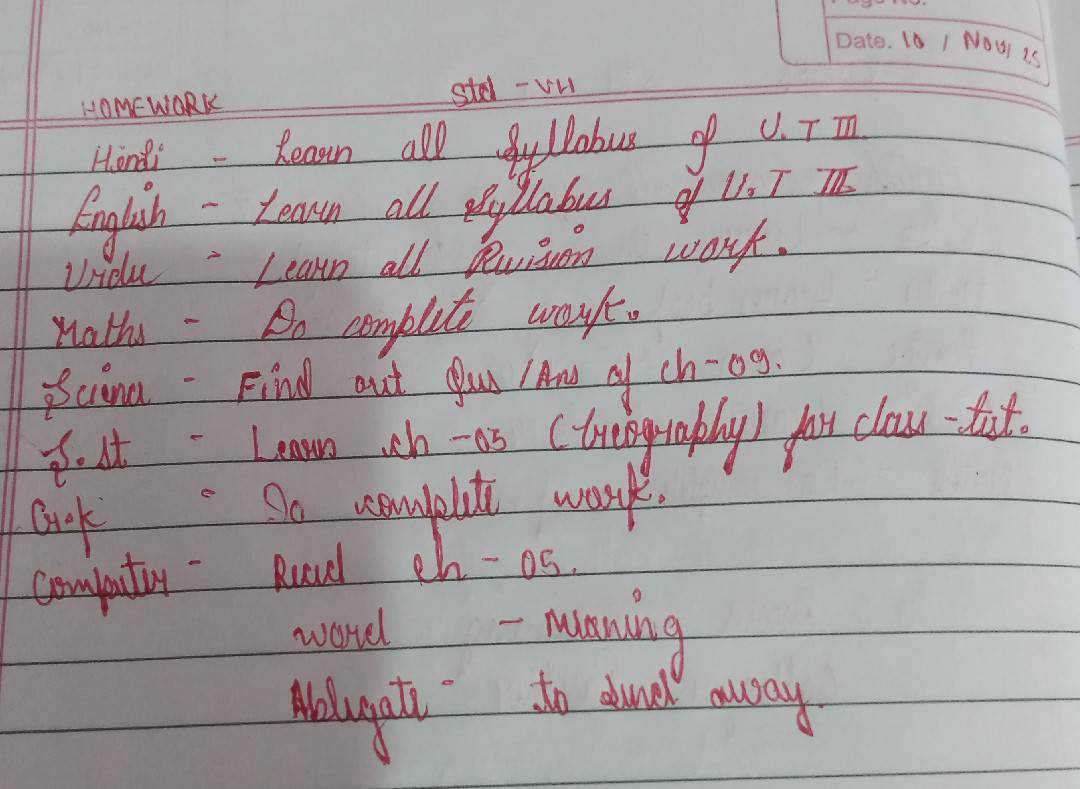 Date. 10 / Nov/ 25
HOMEWORK Std - VII
Hindi - Learn all Syllabus of U.T III
English - Learn all Syllabus of U.T III
Urdu - Learn all Revision work.
Maths - Do complete work.
Science - Find out Ques / Ans of ch-09.
S.st - Learn ch-05 (Geography) for class-test.
G.K - Do complete work.
Computer - Read ch-05.
word - Meaning
Ablegate - to send away.